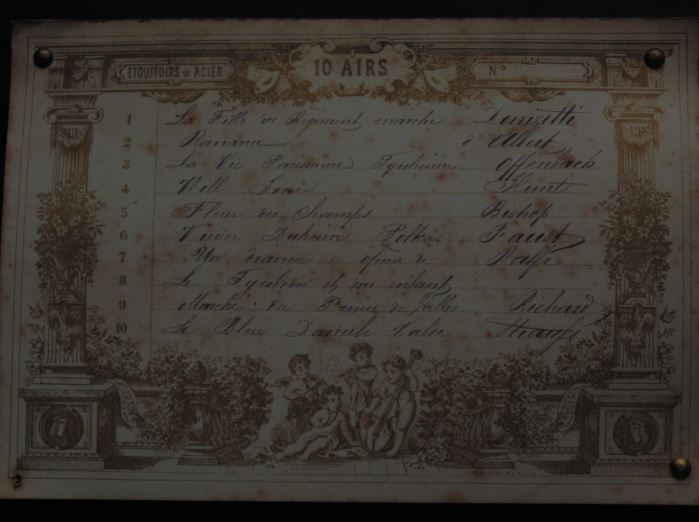 ETOUFFOIRS en ACIER
10 AIRS
N°
1 La Fille du Régiment marche Donizetti
2 Romance d° Albert
3 La Vie Parisienne Tyrolienne Offenbach
4 Will Hunt
5 Fleur des Champs Bishop
6 Polka Faust
7 Un drame opera de
8 Le Tyrolien et son enfant
9 Marche du Prince de Galles Richard
10 Le Bleu Danube Valse Strauss